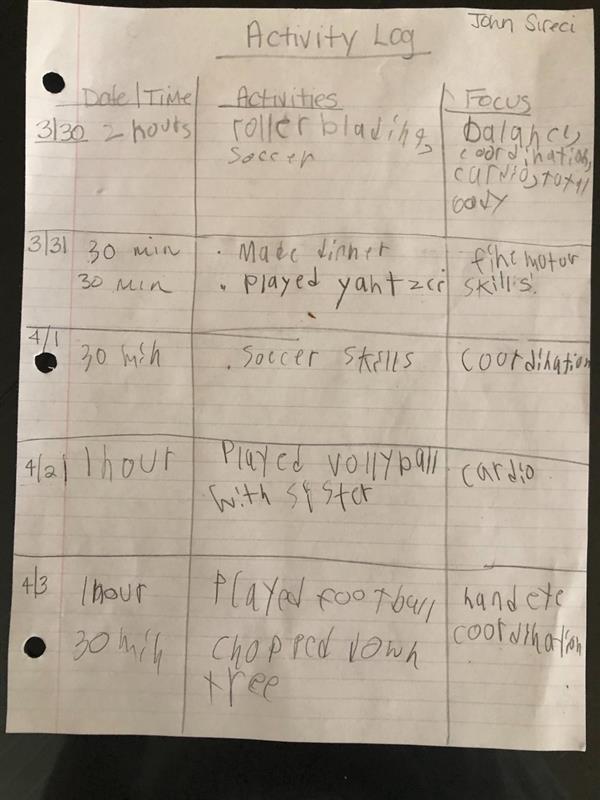 John Sireci
Activity Log
Date/Time Activities Focus
3/30 2 hours rollerblading, balance,
soccer coordination,
cardio, total
body
3/31 30 min . Made dinner fine motor
30 min . Played yahtzee skills.
4/1
30 min . Soccer skills coordination
4/2 1 hour Played vollyball cardio
with sister
4/3 1 hour Played football hand eye
30 min chopped down coordination
tree